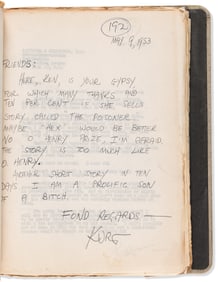 192
MAY 9, 1953
FRIENDS:
HERE, KEN, IS YOUR GYPSY
FOR WHICH MANY THANKS AND
TEN PER CENT IF SHE SELLS
STORY CALLED THE POISONER
MAYBE "HEX" WOULD BE BETTER
NO O HENRY PRIZE, I'M AFRAID.
THE STORY IS TOO MUCH LIKE
O. HENRY.
ANOTHER SHORT STORY IN TEN
DAYS I AM A PROLIFIC SON
OF A BITCH.
FOND REGARDS —